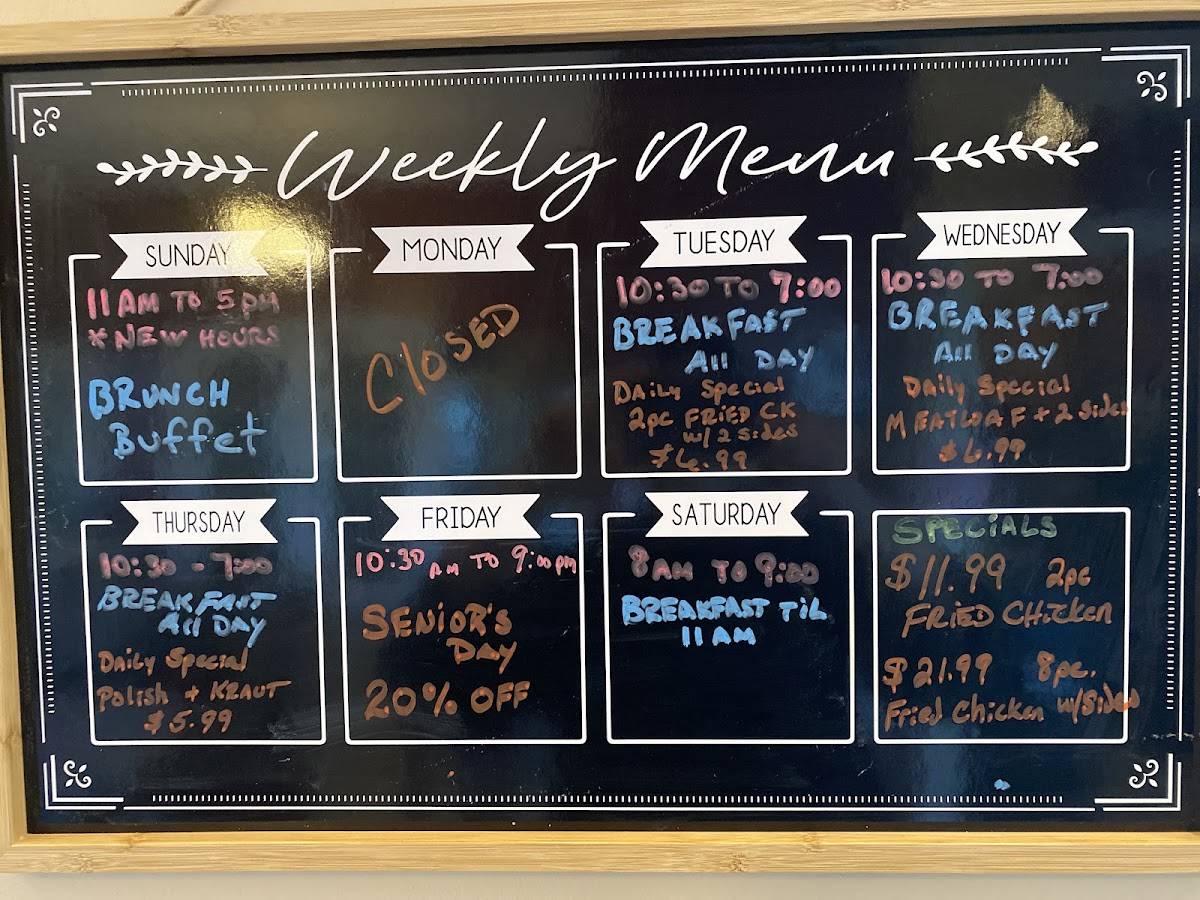 Weekly Menu
SUNDAY
11 AM TO 5 PM
*NEW HOURS
BRUNCH
Buffet
MONDAY
ClOSED
TUESDAY
10:30 TO 7:00
BREAKFAST
All DAY
DAily Special
2pc FRiED CK
w/2 Sides
$6.99
WEDNESDAY
10:30 TO 7:00
BREAKFAST
All DAY
DAily Special
MEATLOAF + 2 Sides
$6.99
THURSDAY
10:30 - 7:00
BREAKFAST
All DAY
DAily Special
Polish + KRAUT
$5.99
FRIDAY
10:30 AM TO 9:00 pm
SENiOR'S
DAY
20% OFF
SATURDAY
8AM TO 9:00
BREAKFAST TiL
11 AM
SPECiALS
$11.99 2pc
FRiED CHicKen
$21.99 8pc.
Fried Chicken w/Sides